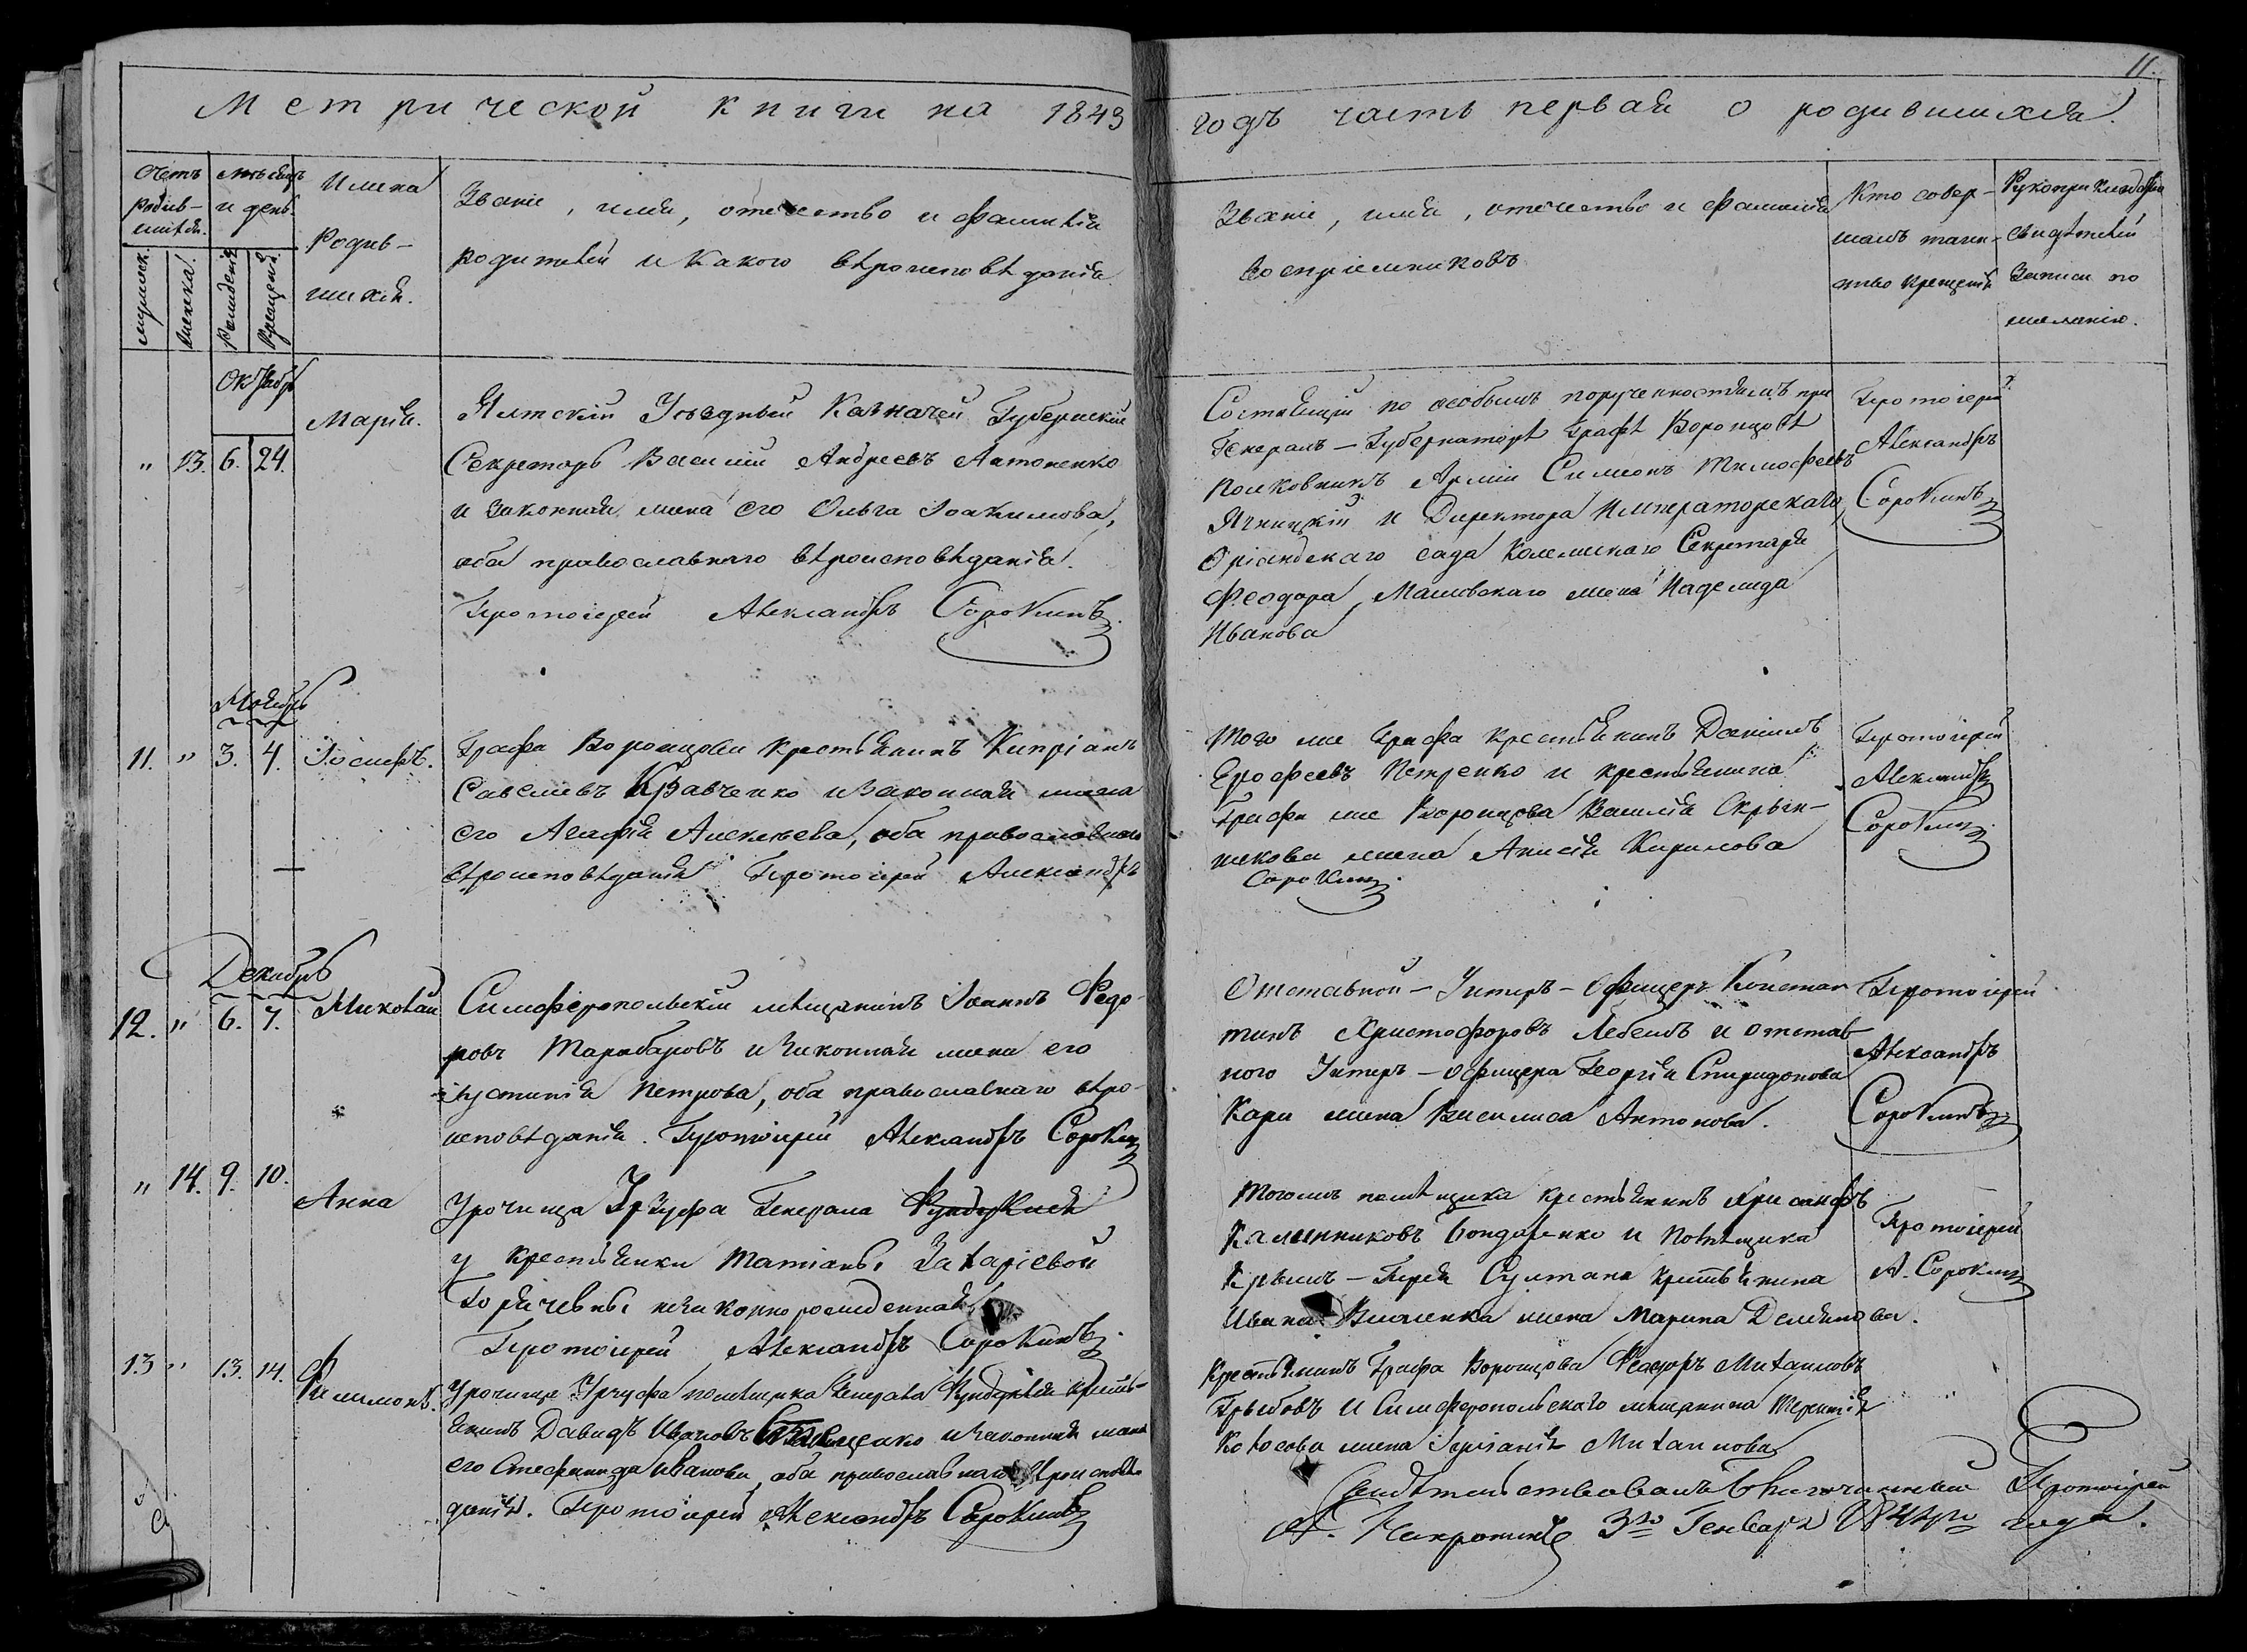 11.
Метрической книги на 1843
годъ часть первая о родившихся.
Счетъ родив-шихся.
мужеск.
женска.
мѣсяцъ и день.
рожденія
крещенія.
Имена
Родив-
шихся.
Званіе, имя, отчество и фамилія
родителей и какого вѣроисповѣданія
Званіе, имя, отчество и фамилія
воспріемниковъ
Кто совер-
шалъ таин-
ство крещенія
Рукоприкладство
свидѣтелей
записи по
желанію.
Октябрь
" 13. 6. 24.
Марія.
Ялтскій Уѣздный Казначей Губернскій
Секретарь Василій Андреевъ Антоненко
и законная жена его Ольга Іоакимова,
оба православнаго вѣроисповѣданія.
Протоіерей Александръ Сорокинъ.
Состоящій по особымъ порученностямъ при
Генералъ-Губернаторѣ Графѣ Воронцовѣ
Полковникъ Арміи Симеонъ Тимофеевъ
Ягницкій и Директора Императорскаго
Оріандскаго сада Колежскаго Секретаря
Феодора Машевскаго жена Надежда
Иванова
Протоіерей
Александръ
Сорокинъ
Ноябрь
11. " 3. 4.
Іосифъ.
Графа Воронцова крестьянинъ Кипріанъ
Савельевъ Кравченко и законная жена
его Агафія Алексѣева, оба православнаго
вѣроисповѣданія Протоіерей Александръ
Сорокинъ.
Того же Графа крестьянинъ Даніилъ
Ерофеевъ Петренко и крестьянина
Графа же Воронцова Василія Скрын-
никова жена Анисія Кирилова
Протоіерей
Александръ
Сорокинъ.
Декабрь
12. " 6. 7.
Николай
Симферопольскій мѣщанинъ Іоаннъ Федо-
ровъ Тарабаровъ и законная жена его
Іустинія Петрова, оба православнаго вѣро-
исповѣданія. Протоіерей Александръ Сорокинъ
Отставной-Унтеръ-Офицеръ Констан
тинъ Христофоровъ Лебель и отстав
ного Унтеръ-офицера Георгія Спиридонова
Кари жена Василиса Антонова.
Протоіерей
Александръ
Сорокинъ
" 14. 9. 10.
Анна
Урочища Урзуфа Генерала Фундуклея
у крестьянки Татіаны Захаріевой
Горячевны незаконнорожденная
Протоіерей Александръ Сорокинъ.
Тогожъ помѣщика крестьянинъ Хрисанфъ
Калинниковъ Бондаренко и Помѣщика
Крымъ-Гирея Султана крестьянина
Ивана жена Марина Демянова.
Протоіерей
А. Сорокинъ
13 " 13. 14.
Филимонъ.
Урочища Урзуфа помѣщика Генерала Фундуклея кресть-
янинъ Давидъ Ивановъ и законная жена
его Стефанида Иванова, оба православнаго вѣроисповѣ-
данія. Протоіерей Александръ Сорокинъ
Крестьянинъ Графа Воронцова Феодоръ Михаиловъ
Грыбовъ и Симферопольскаго мѣщанина Терентія
Колосова жена Іуліанія Михаилова
Свидѣтельствовалъ благочинный Протоіерей
3го Генваря 1844го года.